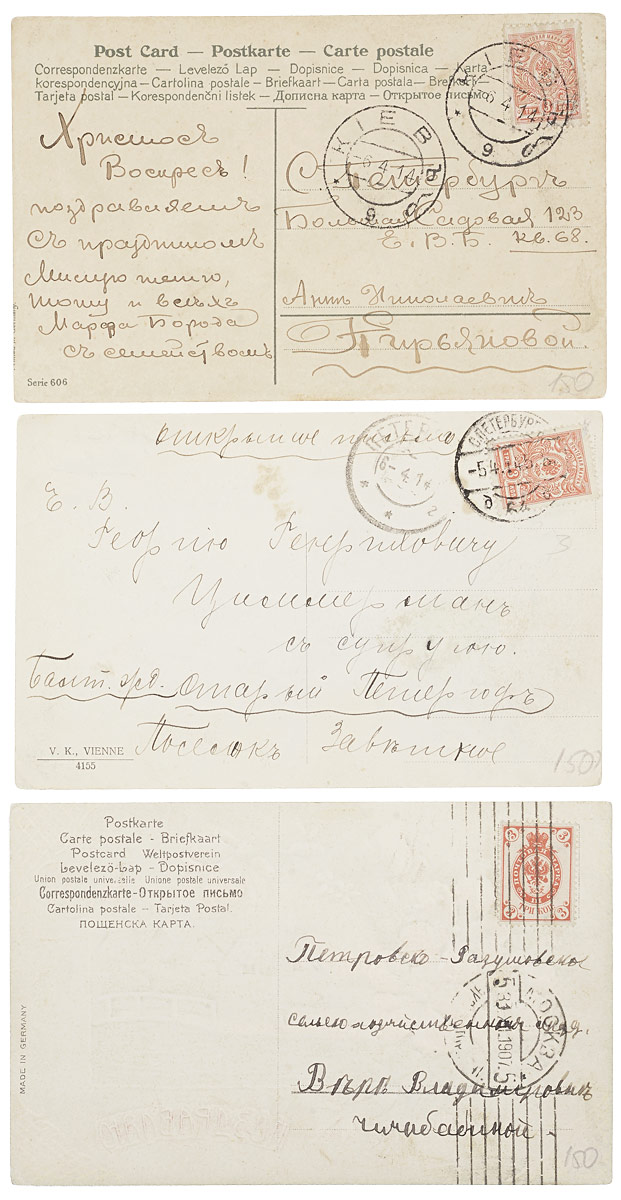 Post Card — Postkarte — Carte postale
Correspondenzkarte — Levelező Lap — Dopisnice — Dopisnica — Karta
korespondencyjna — Cartolina postale — Briefkaart — Carta postala — Brefkort
Tarjeta postal — Korespondenční listek — Дописна карта — Открытое письмо
КІЕВЪ
6 4 14
9
КІЕВЪ
6 4 14
9
Христосъ
Воскресъ!
поздравляемъ
съ праздникомъ
Милую тетю,
Тошу и всѣхъ
Марфа Борода
съ семействомъ
С Петербургъ
Большая Садовая 123
Е. В. Б. кв. 68.
Аннѣ Николаевнѣ
Кирьяновой.
Serie 606
150
открытое письмо
ПЕТЕР
6-4 14
С.ПЕТЕРБУР
-5 4 14
Е. В.
Георгію Генриховичу
Циммерманъ
съ супругою.
Балт. жд. Старый Петергофъ
Поселокъ
V. K., VIENNE
4155
3
150
Postkarte
Carte postale - Briefkaart
Postcard Weltpostverein
Levelező-Lap - Dopisnice
Union postale universelle Unione postale universale
Correspondenzkarte-Открытое письмо
Cartolina postale — Tarjeta Postal.
ПОЩЕНСКА КАРТА.
MADE IN GERMANY
3 3
ТРИ КОП
3 3
МОСКВА
1907
Петровско-Разумовское
сельскохозяйственный
Вѣрѣ Владиміровнѣ
Чичибабиной.
150